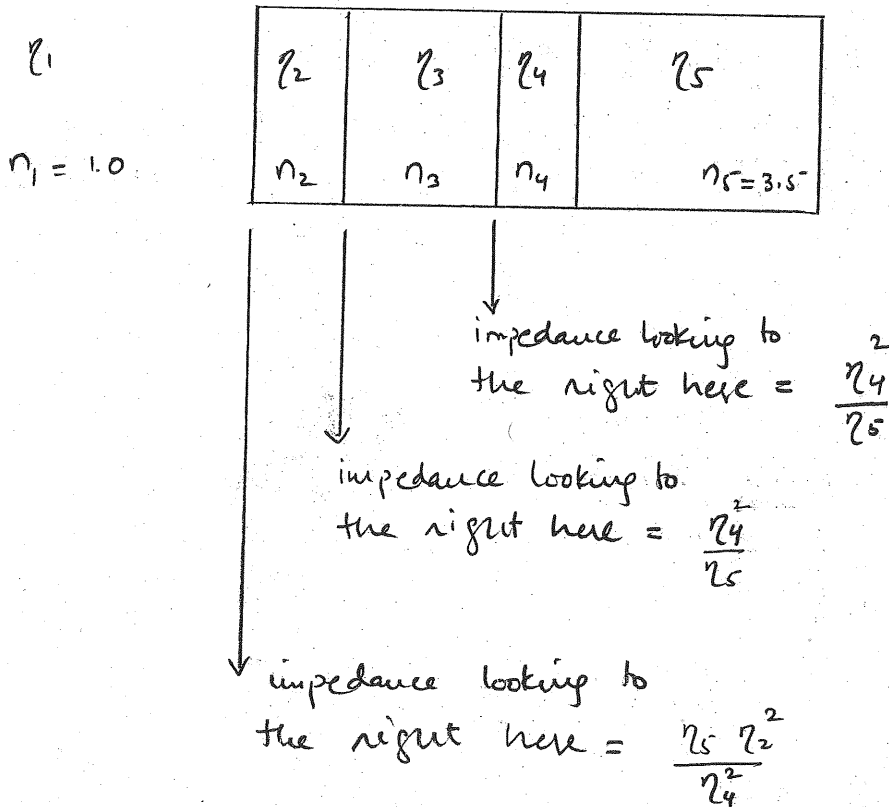 η₁ η₂ η₃ η₄ η₅
n₁ = 1.0 n₂ n₃ n₄ n₅=3.5
impedance looking to
the right here = η₄²/η₅
impedance looking to
the right here = η₄²/η₅
impedance looking to
the right here = η₅ η₂²/η₄²